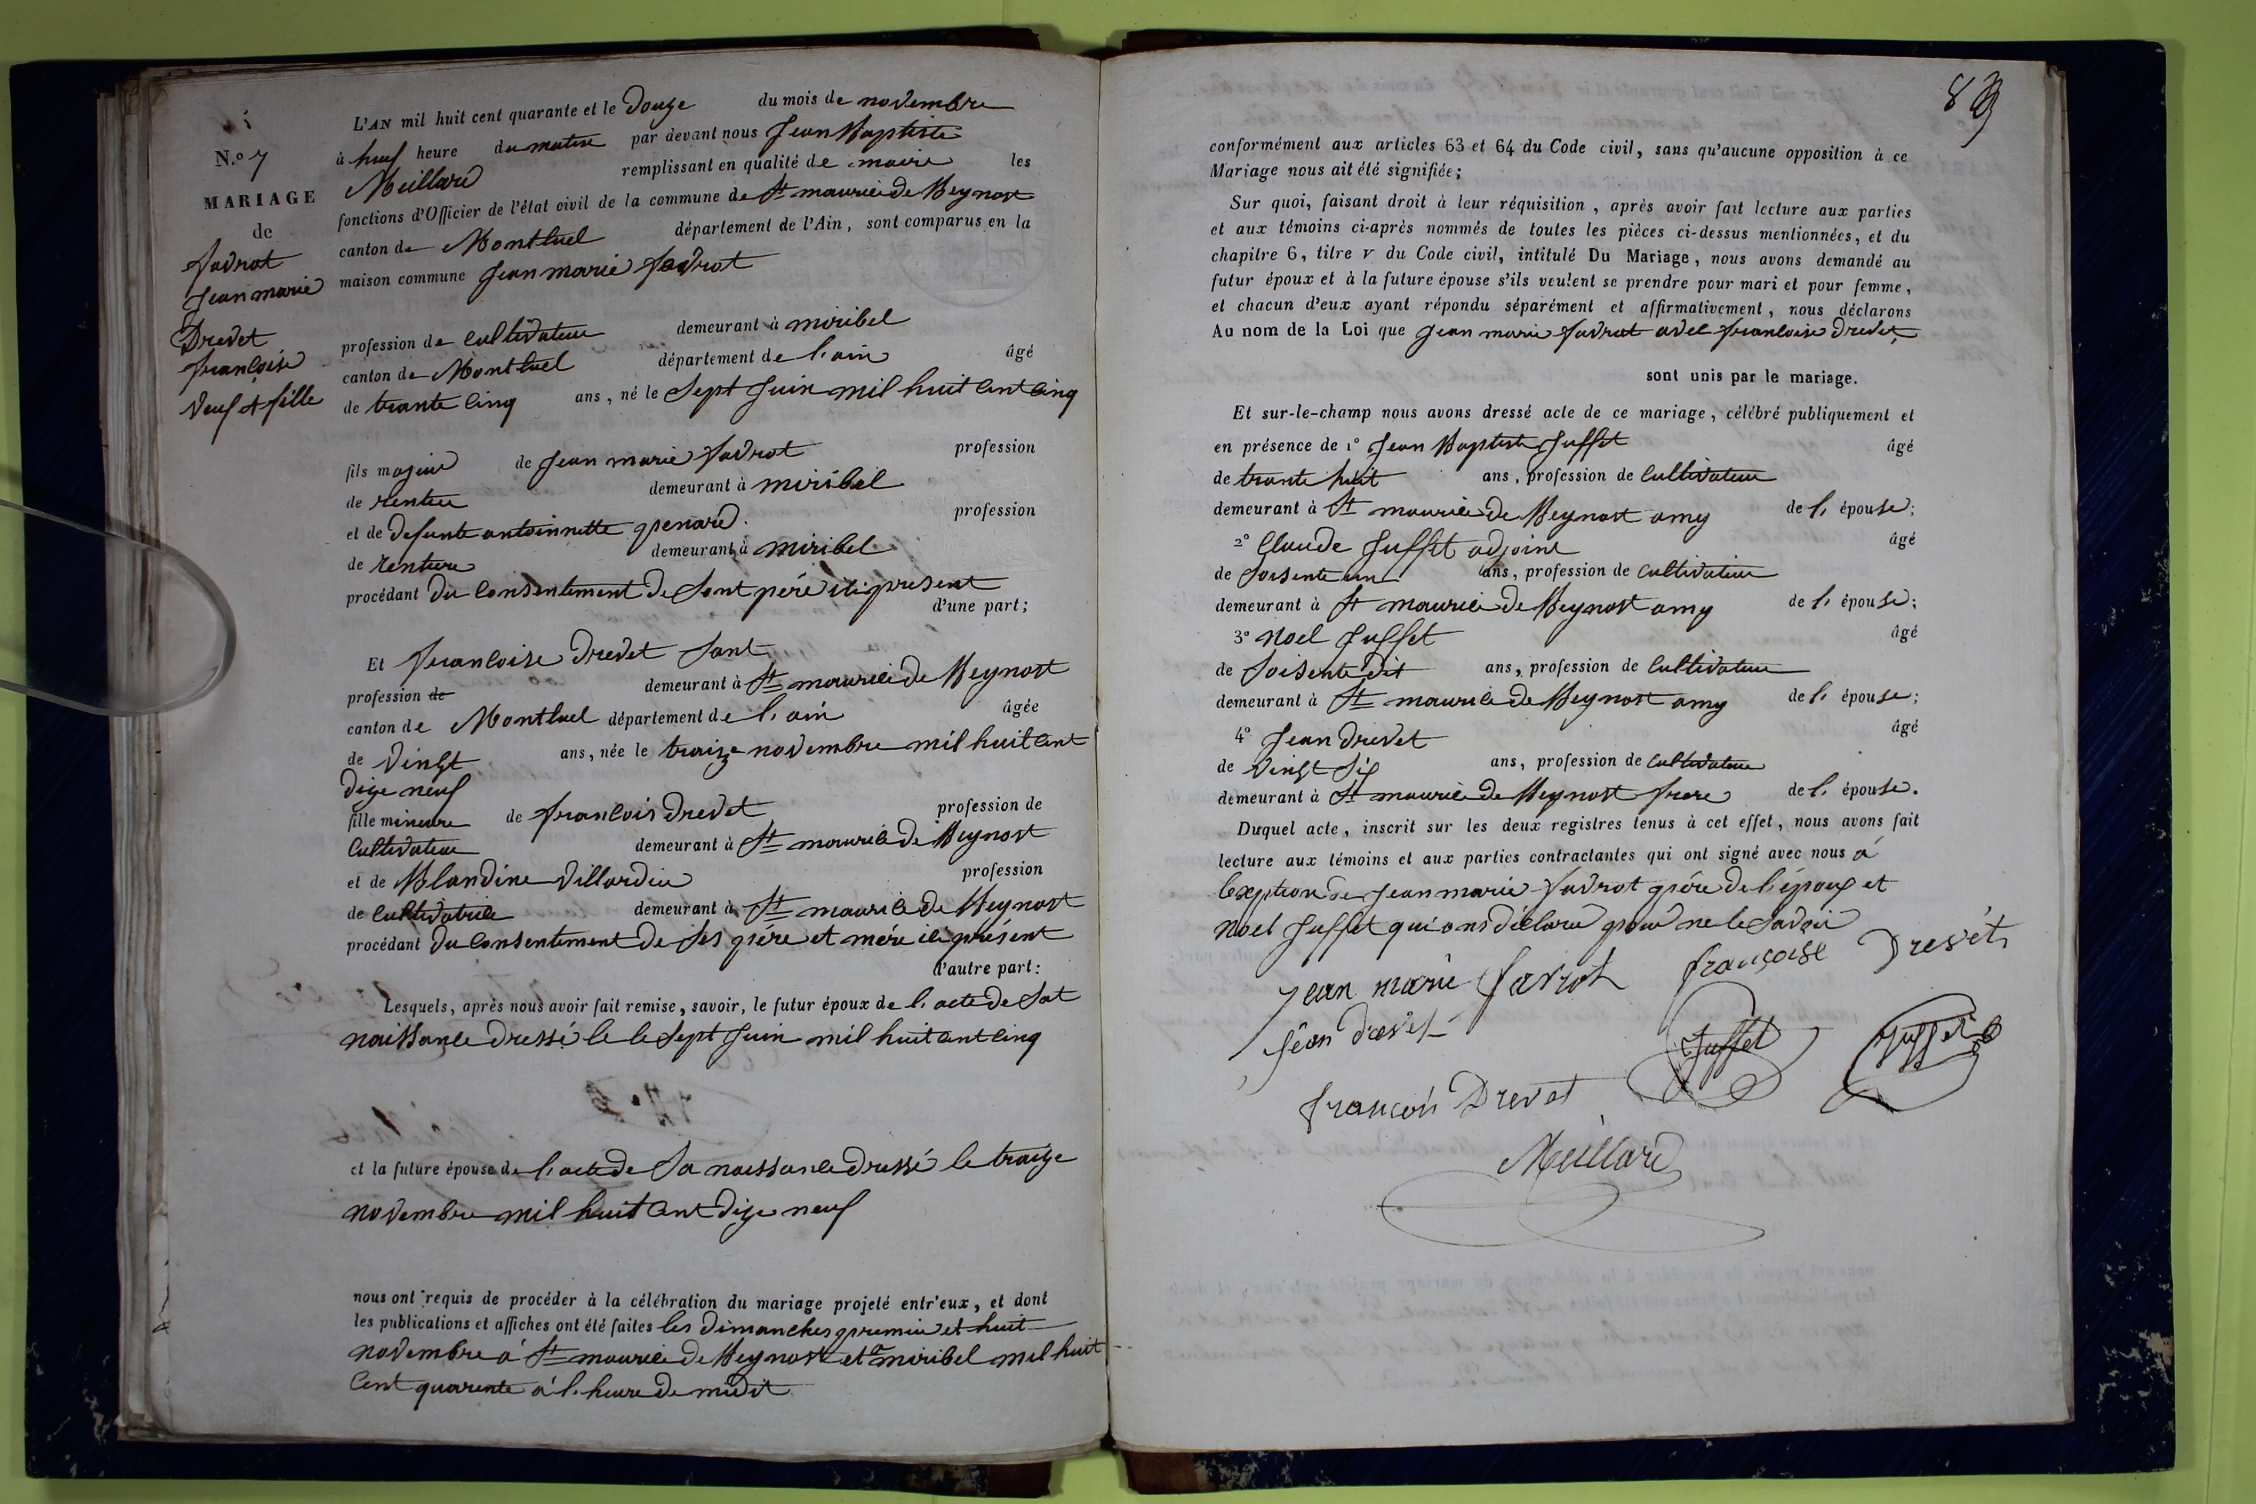 N.o 7
MARIAGE
de
favrot
Jean marie
Drevet
francoise
veuf et fille
L'AN mil huit cent quarante et le douze du mois de novembre
à heuf heure du matin par devant nous Jean Baptiste
Meillard remplissant en qualité de maire les
fonctions d'Officier de l'état civil de la commune de St maurice de Beynost
canton de Montluel département de l'Ain, sont comparus en la
maison commune Jean marie favrot
profession de cultivateur demeurant à miribel
canton de Montluel département de l'ain âgé
de trante cinq ans, né le Sept Juin mil huit cent cinq
fils majeur de Jean marie favrot profession
de rentier demeurant à miribel
et de defunte antoinnette grenard. profession
de Rentiere demeurant à miribel
procédant du Consentement de Sont père ici present
d'une part;
Et francoise Drevet Sant
profession de demeurant à St maurice de Beynost
canton de Montluel département de l'ain âgée
de vingt ans, née le traize novembre mil huit cent
dize neuf
fille mineure de francois Drevet profession de
Cultivateur demeurant à St maurice de Beynost
et de Blandine Villardier profession
de Cultivatrice demeurant à St maurice de Beynost
procédant du Consentement de Ses père et mère ici présent
d'autre part:
Lesquels, après nous avoir fait remise, savoir, le futur époux de l'acte de Sat
naissance dressé le le Sept Juin mil huit cent cinq
et la future épouse de l'acte de Sa naissance dressé le traize
novembre mil huit cent dize neuf
nous ont requis de procéder à la célébration du mariage projeté entr'eux, et dont
les publications et affiches ont été faites les Dimanches premier et huit
novembre à St maurice de Beynost et a miribel mil huit
Cent quarente à l'heure de midit
83
conformément aux articles 63 et 64 du Code civil, sans qu'aucune opposition à ce
Mariage nous ait été signifiée;
Sur quoi, faisant droit à leur réquisition, après avoir fait lecture aux parties
et aux témoins ci-après nommés de toutes les pièces ci-dessus mentionnées, et du
chapitre 6, titre V du Code civil, intitulé Du Mariage, nous avons demandé au
futur époux et à la future épouse s'ils veulent se prendre pour mari et pour femme,
et chacun d'eux ayant répondu séparément et affirmativement, nous déclarons
Au nom de la Loi que Jean marie favrot avec francoise Drevet
sont unis par le mariage.
Et sur-le-champ nous avons dressé acte de ce mariage, célébré publiquement et
en présence de 1° Jean Baptiste Juffet âgé
de trante huit ans, profession de Cultivateur
demeurant à St maurice de Beynost amy de l'épouse;
2° Claude Juffet adjoint âgé
de Soisente un ans, profession de Cultivateur
demeurant à St maurice de Beynost amy de l'épouse;
3° noel Juffet âgé
de Soisente dit ans, profession de Cultivateur
demeurant à St maurice de Beynost amy de l'épouse;
4° Jean Drevet âgé
de vingt Sis ans, profession de Cultivateur
demeurant à St maurice de Beynost frere de l'épouse.
Duquel acte, inscrit sur les deux registres tenus à cet effet, nous avons fait
lecture aux témoins et aux parties contractantes qui ont signé avec nous à
lexption de Jean marie favrot père de l'époux et
noel Juffet qui ons déclaré pour ne le Savoir
jean marie favrot françoise Drevet
jean drevet Juffet Juffet
françois Drevet
Meillard